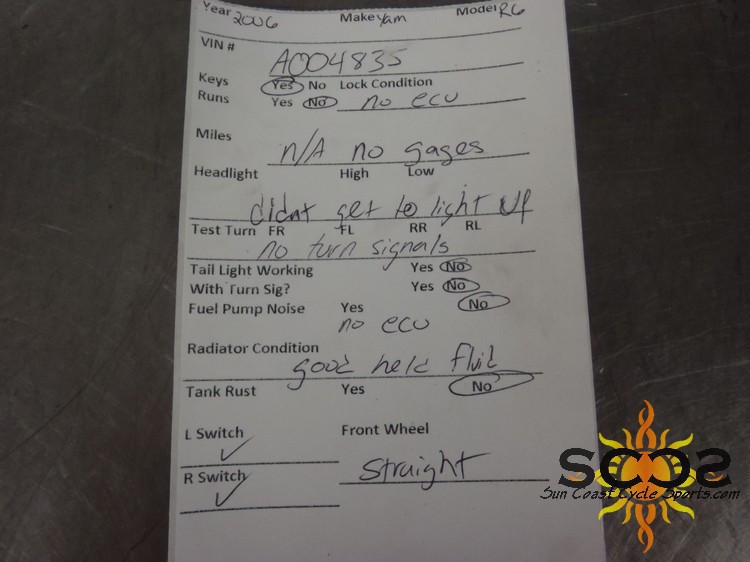 Year 2006 Make Yam Model R6
VIN # A004835
Keys Yes No Lock Condition
Runs Yes No no ecu
Miles n/A no gages
Headlight High Low
didnt get to light up
Test Turn FR FL RR RL
no turn signals
Tail Light Working Yes No
With Turn Sig? Yes No
Fuel Pump Noise Yes No
no ecu
Radiator Condition
good held fluid
Tank Rust Yes No
L Switch ✓ Front Wheel
R Switch ✓ straight
SCCS
Sun Coast Cycle Sports.com